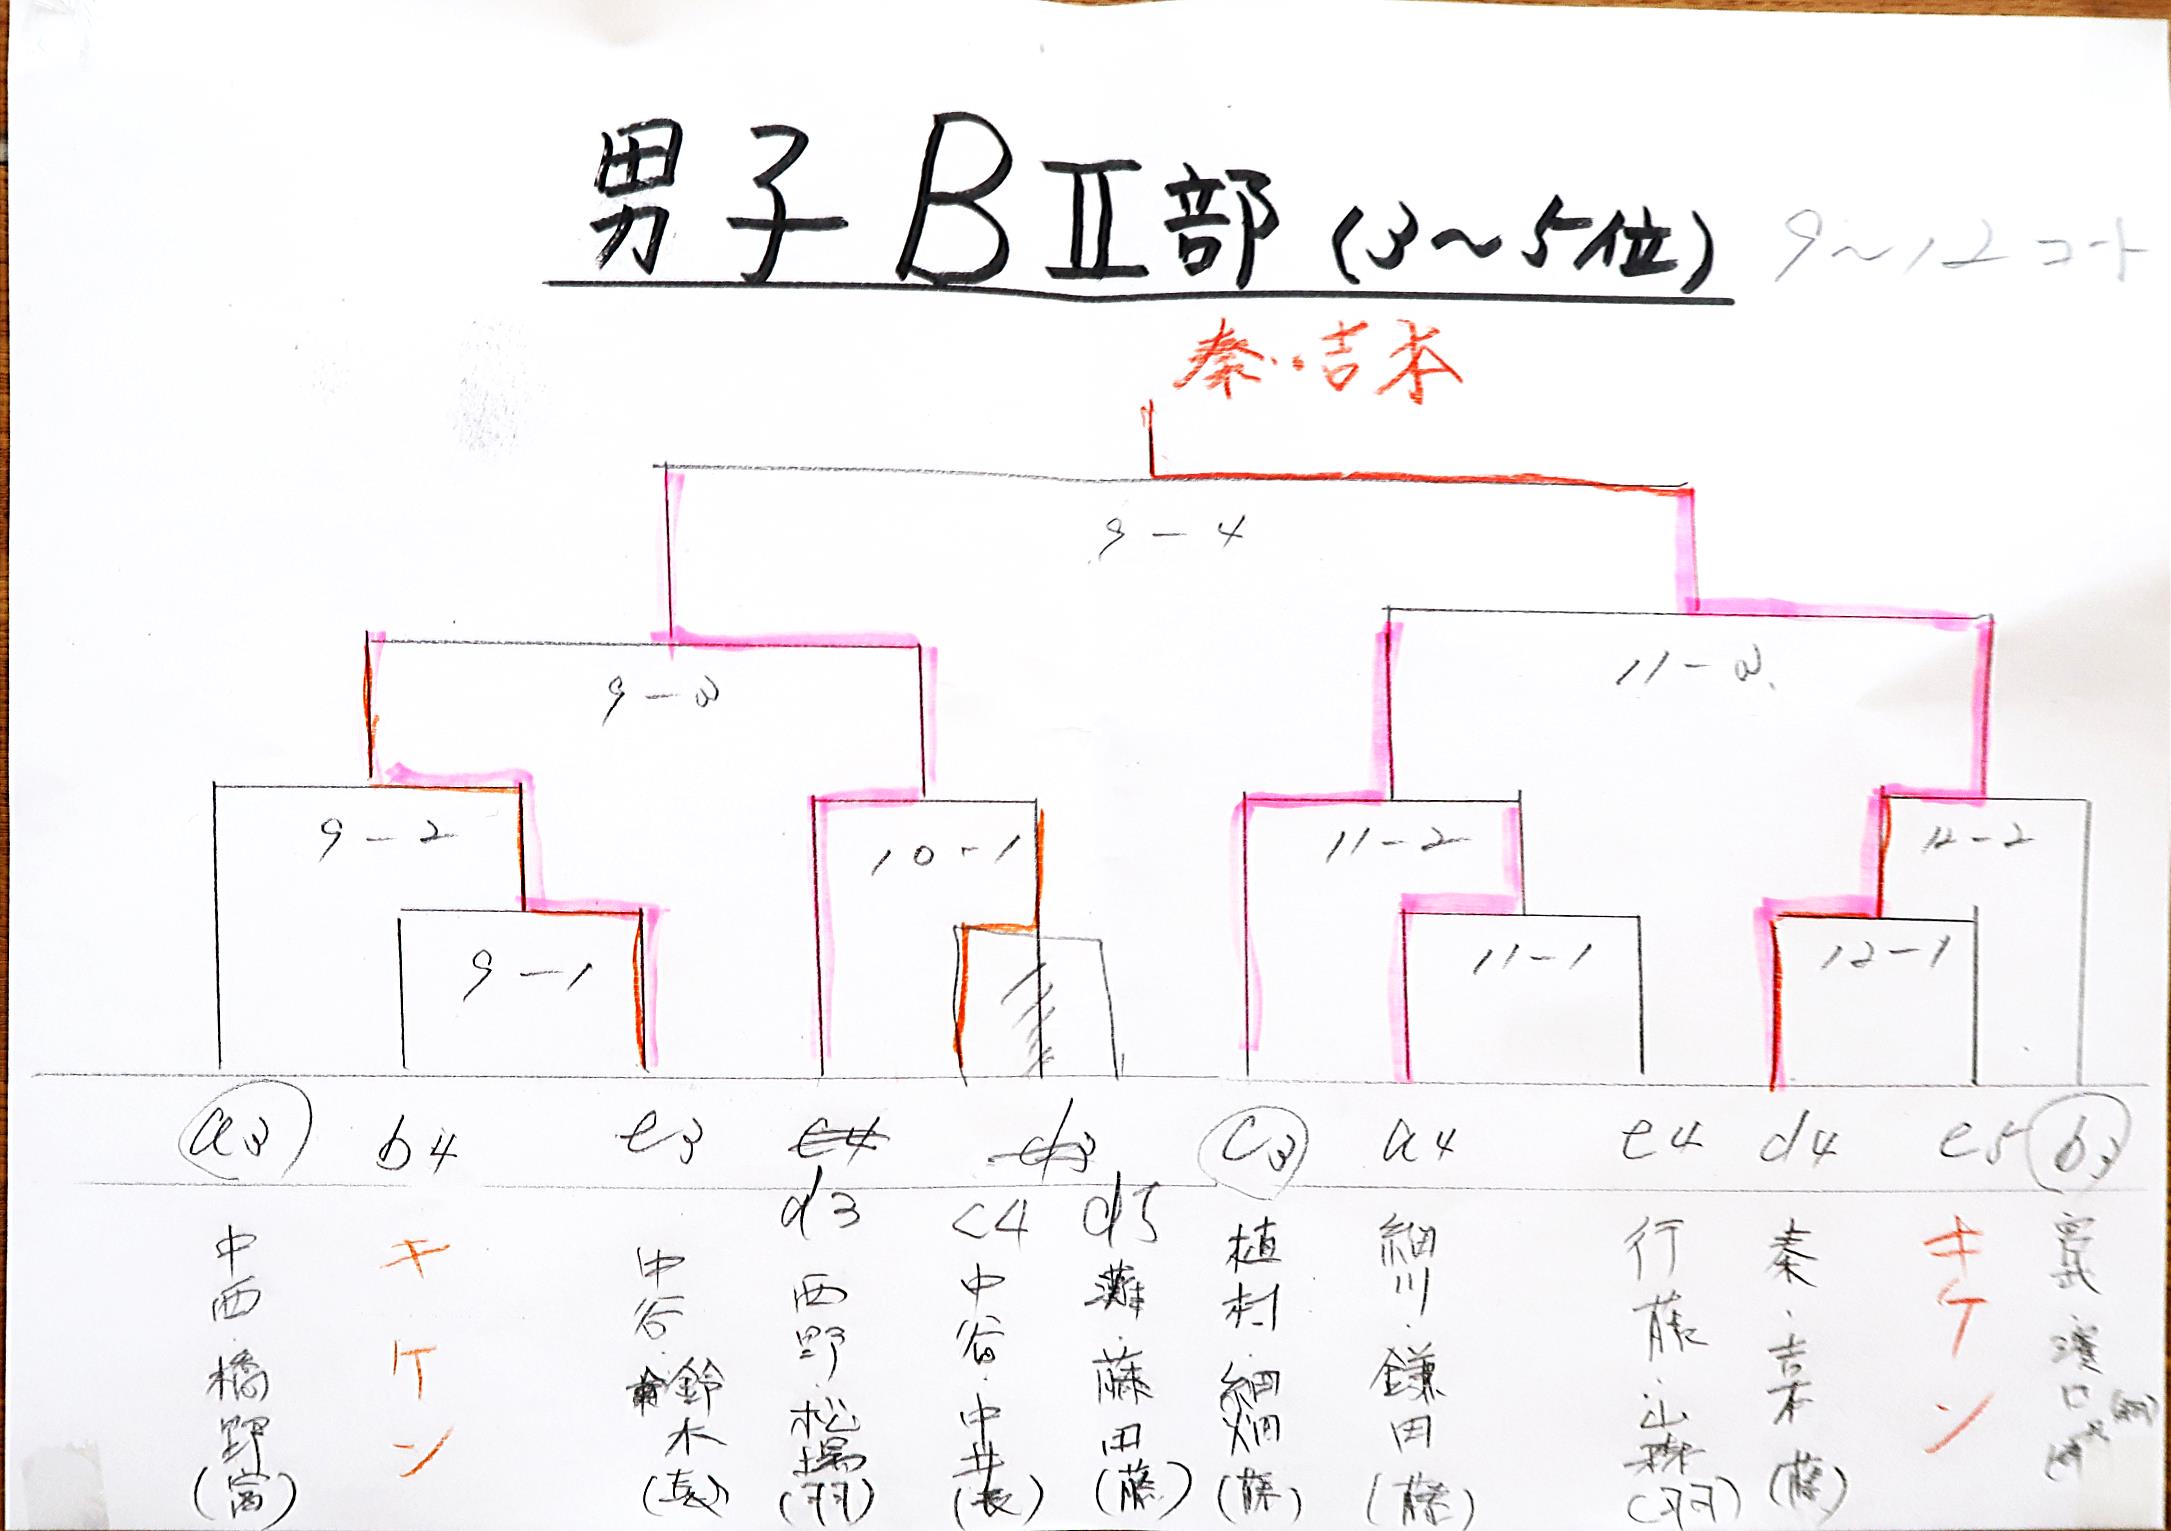 男子BⅡ部(3～5位) 9～12コート
秦・吉本
9-4
9-3
11-3
9-2
10-1
11-2
12-2
9-1
11-1
12-1
a3 b4 e3 c4 d3 c3 a4 e4 d4 e5 b3
d3 c4 d5
中西・橋野(富)
キケン
中谷・鈴木
西野・松場(羽)
中谷・中井(長)
灘・藤田(藤)
植村・細畑(藤)
細川・鎌田(藤)
行藤・山森(羽)
秦・吉本(藤)
キケン
濱口